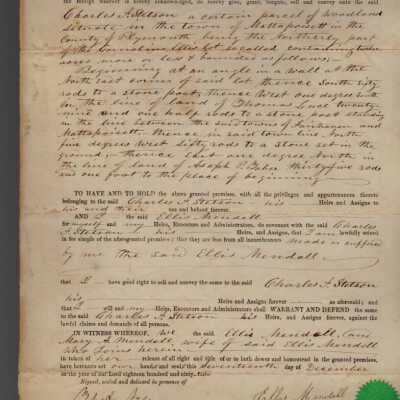 the receipt whereof is hereby acknowledged, do hereby give, grant, bargain, sell and convey unto the said
Charles F. Stetson a certain parcel of woodland
situate in the town of Mattapoisett in the
County of Plymouth being the Northerly part
of the Caroline Ellis Lot so called containing twelve
acres more or less & bounded as follows;
Beginning at an angle in a wall at the
North East corner of said lot thence South sixty
rods to a stone post, thence West one degree North
in the line of land of Thomas Luce twenty-
nine and one half rods to a stone post standing
in the line between the said towns of Fairhaven and
Mattapoisett, thence in said town line North
five degrees West sixty rods to a stone set in the
ground, thence East one degree North in
the line of land of Joseph thirty five rods
and one foot to the place of beginning
TO HAVE AND TO HOLD the above granted premises, with all the privileges and appurtenances thereto
belonging to the said Charles F. Stetson his Heirs and Assigns to
his and their use and behoof forever.
AND I the said Ellis Mendall
for myself and my Heirs, Executors and Administrators, do covenant with the said Charles
F. Stetson his Heirs, and Assigns, that I am lawfully seized
in fee simple of the afore-granted premises; that they are free from all incumbrances made or suffered
by me the said Ellis Mendall
that I have good right to sell and convey the same to the said Charles F. Stetson
his Heirs and Assigns forever as aforesaid; and
that I and my Heirs, Executors and Administrators shall WARRANT AND DEFEND the same
to the said Charles F. Stetson his Heirs, and Assigns forever, against the
lawful claims and demands of all persons.
IN WITNESS WHEREOF, we the said Ellis Mendall, and
Mary A. Mendall, wife of said Ellis Mendall
who joins herein
in token of her release of all right and title of or to both dower and homestead in the granted premises,
have hereunto set our hands and seals this seventeenth day of December
in the year of our Lord eighteen hundred and sixty
Signed, sealed and delivered in presence of
Ellis Mendall